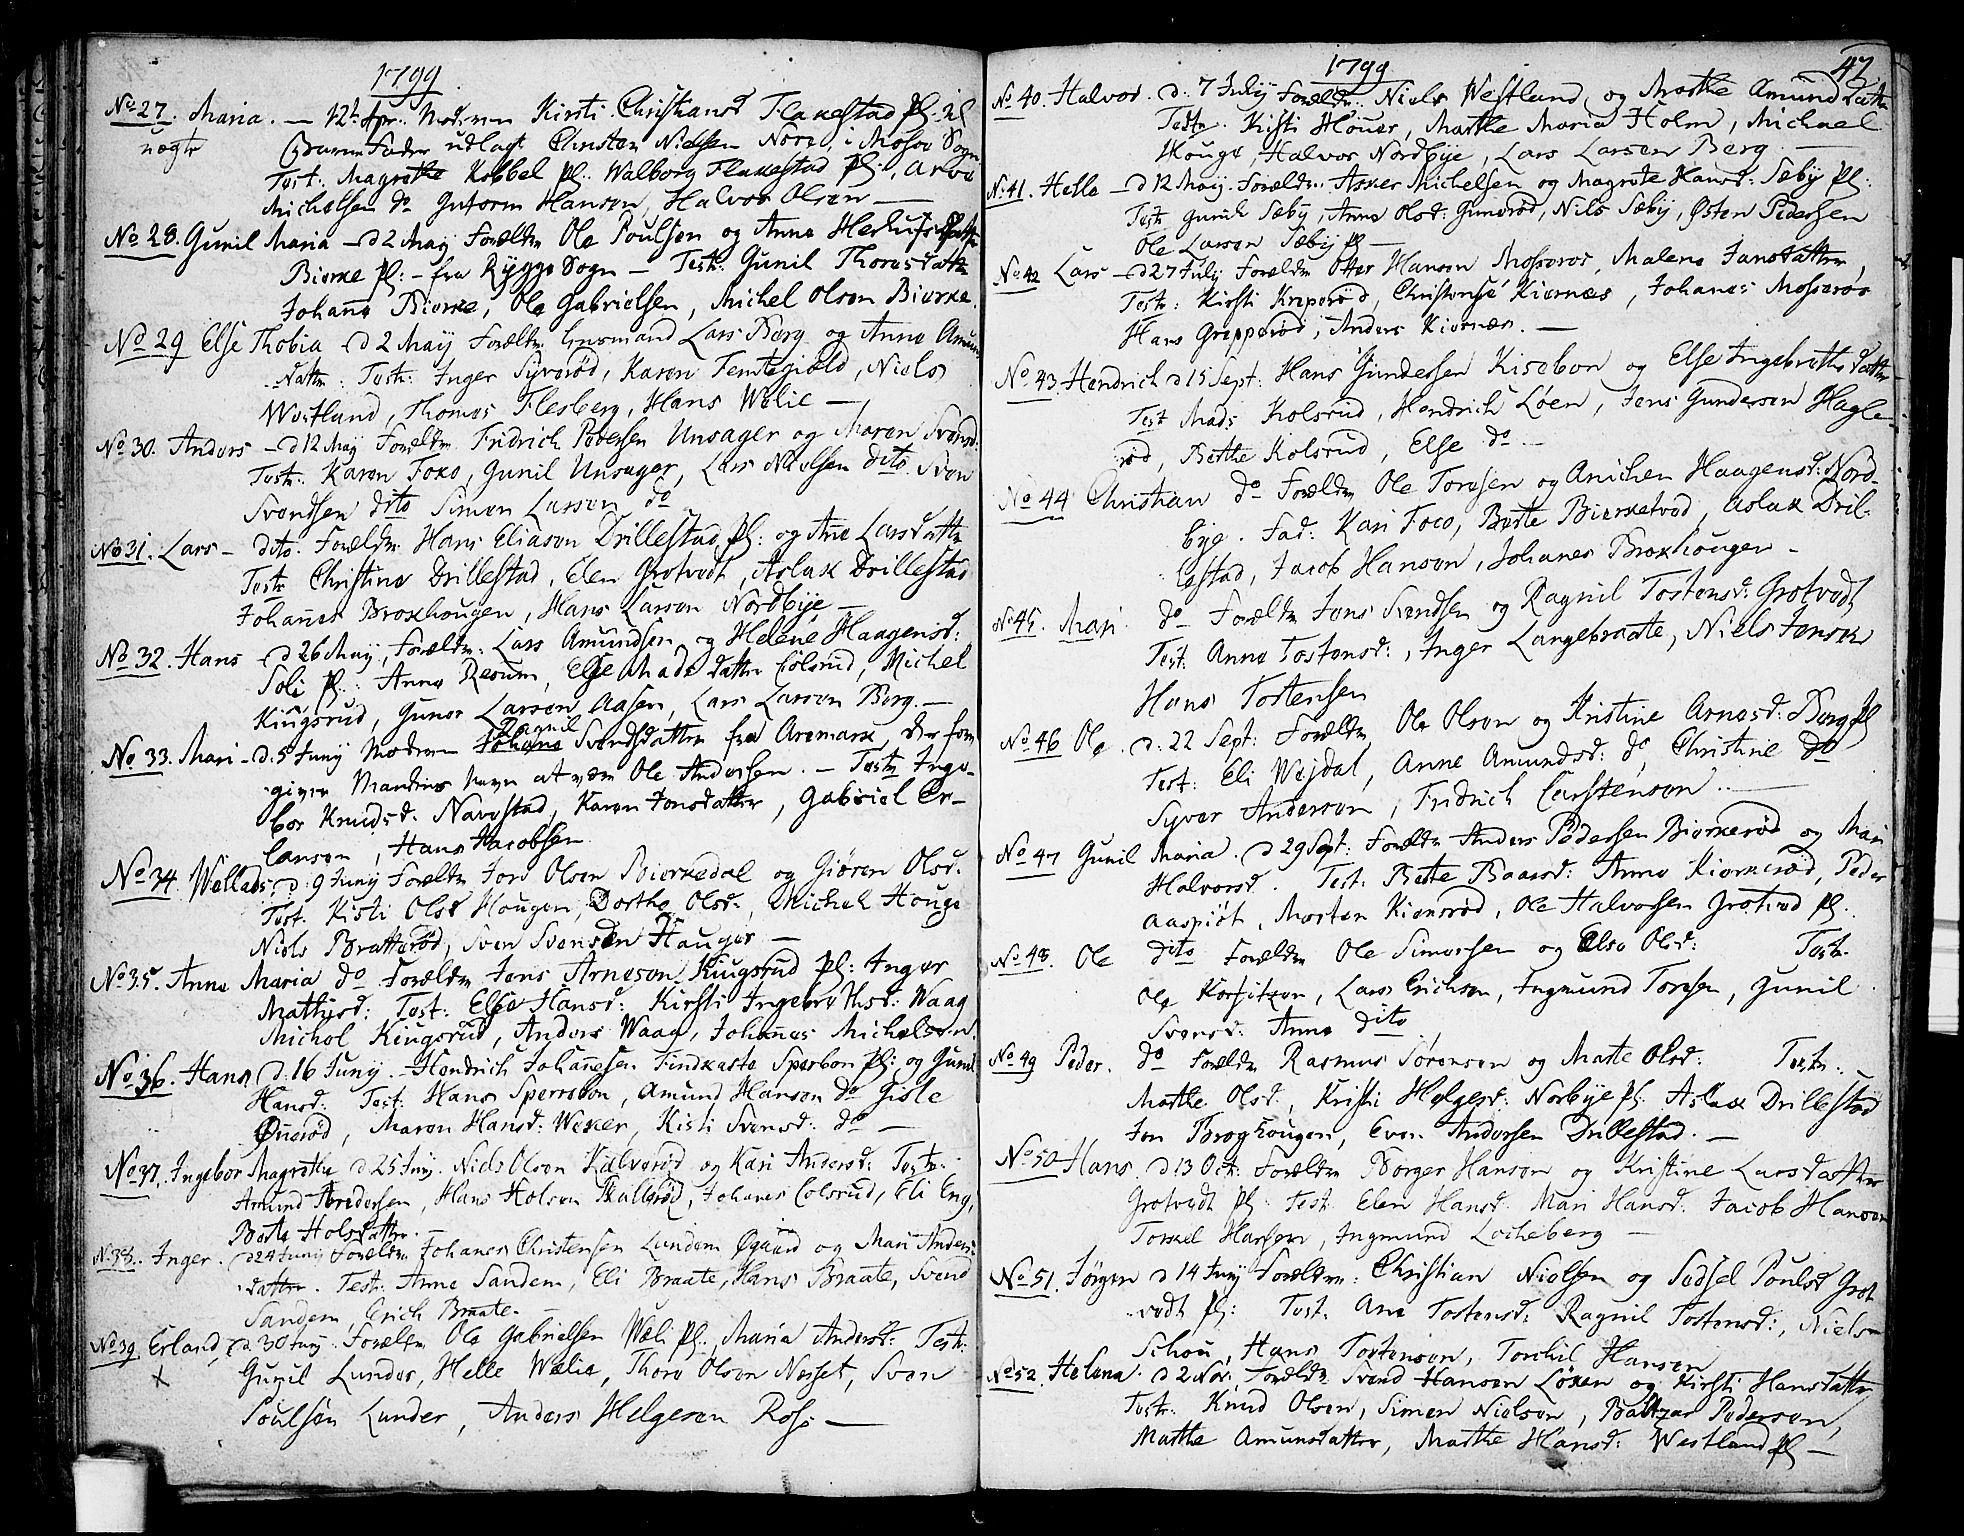 1799
No 27. Maria. — 12te Apr. Moderen Kirsti Christiansd Flakestad pl: til
uægte
Barne Fader udlagt Christen Nielsen Nore, i Mosse Sogn
Test: Magrethe Kobbel pl: Walborg Flakestad pl:, Arve
Michelsen do Gutorm Hansen, Halvor Olsen —
No 28. Gunil Maria — d 2 May Forældr Ole Poulsen og Anne Herlufsdatter
Bierke pl: — fra Rygge Sogn — Test: Gunil Thoresdatter
Johanne Bierke, Ole Gabrielsen, Michel Olsen Bierke.
No 29 Else Thobia d 2 May Forældr Lars Berg og Anne Amunds
datter: Test: Inger Syverød, Karen Femtegield, Niels
Westland, Thomas Flesberg, Hans Welie —
No 30. Anders — d 12 May Forældr Fridrich Pedersen Unsager og Maren Svensd.
Test: Karen Foxo, Gunil Unsager, Lars Nielsen dito, Sven
Svendsen dito Simon Larsen do
No 31. Lars — dito. Forældr Hans Eliasen Drillestad pl: og Ane Larsdattr
Testr Christine Drillestad, Elen Grotvedt, Aslak Drillestad
Johannes Broxhougen, Hans Larsen Nordbye —
No 32. Hans d 26 May, Forældr: Lars Amundsen og Helene Haagensd:
Soli pl: Anne Resum, Else Madsdatter Colsrud, Michel
Kiugsrud, Guner Larsen Aasen, Lars Larsen Berg. —
Ragnil
No 33. Mari — d: 5 Juny Moderen Johane Svendsdatter fra Aremark, der fore
giver Mandens navn at være Ole Andersen. — Testr Inge-
bor Knudsd: Navestad, Karen Jonsdatter, Gabriel Er-
lansen, Hans Jacobsen
No 34 Wellads, d: 9 Juny Forældr Jon Olsen Bierkedal og Giøren Olsd.
Test. Kisti Olsd Hougen, Dorthe Olsd:, Michel Houge
Niels Bratterød, Sven Svensen Hauger —
No 35. Anne Maria do Forældr Jens Arnesen Kiugsrud pl: Inger
Mattisd: Test: Else Hansd: Kirsti Ingebrethsd: Waag
Michel Kiugsrud, Anders Waag, Johannes Michelsen.
No 36. Hans, d. 16 Juny. Hendrich Johannesen Findkasta Sperbon pl: og Gunil
Hansd: Test: Hans Sperrebon, Amund Hansen do Gisle
Øuerød, Maren Hansd: Weker, Kisti Svensd: do —
No 37. Ingebor Magrethe d 25 Juny. Niels Olsen Kalverød og Kari Andersd: Testr:
Amund Andersen, Hans Holsen Skallerød, Johanes Colsrud, Eli Eng,
Berte Holsdatter. —
No 38. Inger. d 24 Juny Forældr Johanes Christensen Lundem Øgaard og Mari Anders-
datter. Test: Anne Sandem, Eli Braate, Hans Braate, Svend
Sandem, Erich Braate.
No 39. Erland, d. 30 Juny: Forældr Ole Gabrielsen Weli pl:, Maria Andersd: Test:
x
Gunil Lunder, Helle Welie, Thore Olsen Nesset, Sven
Poulsen Lunder, Anders Helgesen Ros: —
1799
47
No 40. Halvor. d: 7 July Forældr: Niels Westland og Marthe Amundsdattr
Testr. Kisti Houer, Marthe Maria Holm, Michael
Houge, Halvor Nordbye, Lars Larsen Berg. —
No 41. Helle — d 12 May. Forældr. Asker Michelsen og Magrete Hansd: Sæby pl:
Testr Gunil Sæby, Anne Olsd: Gunerød, Nils Sæby, Østen Pedersen
Ole Larsen Sæby pl —
No 42 Lars — d 27 July Forældr Otter Hansen Mosseros, Malene Jansdatter,
Test: Kirsti Kreperød, Christense Kiernæs, Johanes Mosserøs
Hans Grepperød, Anders Kiernæs. —
No 43. Hendrich d 15 Sept: Hans Gundersen Kisebon og Else Ingebrethsdatter
Test Mads Kolsrud, Hendrich Løen, Jens Gundersen Hagle-
rød, Berthe Kolsrud, Else do —
No 44 Christian do Forældr Ole Toresen og Anichen Haagensd: Nord-
bye. Fad: Kari Foco, Berte Bierketvod, Aslak Dril-
lestad, Jacob Hansen, Johanes Broxhougen —
No 45. Mari. do Forældr Jens Svendsen og Ragnil Tostensd: Grotvedt
Test: Anne Tostensd:, Inger Langebraate, Niels Jensen
Hans Tostensen
No 46 Ole. d: 22 Sept: Forældr Ole Olsen og Kristine Arnesd: Berg pl
Test: Eli Wejdal, Anne Amundsd: do, Christine do
Syver Andersen, Fridrich Carstensen. —
No 47 Gunil Maria. d 29 Sept: Forældr Anders Pedersen Bierkerød og Mari
Halvorsd. Test: Berte Baarsd: Anne Kierkerød, Peder
Aaspiøt, Morten Kiensrød, Ole Halvorsen Grotvod pl.
No 48. Ole dito Forældr Ole Simensen og Else Olsd: Testr.
Ole Korfitzen, Lars Erichsen, Ingmund Toresen, Gunil
Svensd: Anne dito
No 49 Peder. do Forældr Rasmus Sørensen og Marte Olsd: Testr:
Marthe Olsd, Kristi Helgesd: Norbye pl: Aslak Drillestad
Jon Broghougen, Even Andersen Drillestad. —
No 50 Hans. d 13 Oct: Forældr Borger Hansen og Kristine Larsdatter
Grotvedt pl: Test: Elen Hansd: Mari Hansd: Jacob Hansen
Torkel Hansen, Ingmund Locheberg —
No 51. Jørgen d 14 Juny Forældre: Christian Nielsen og Sidsel Poulsd Grot
vedt pl: Test: Ane Tostensd: Ragnil Tostensd:, Niels
Schou, Hans Tostensen, Torchil Hansen
No 52. Helena. d 2 Nov: Forældr. Svend Hansen Løken og Kirsti Hansdatter
Testr. Knud Olsen, Simen Nielsen, Baltzar Pedersen,
Marthe Amunsdatter, Marthe Hansd: Westland pl —